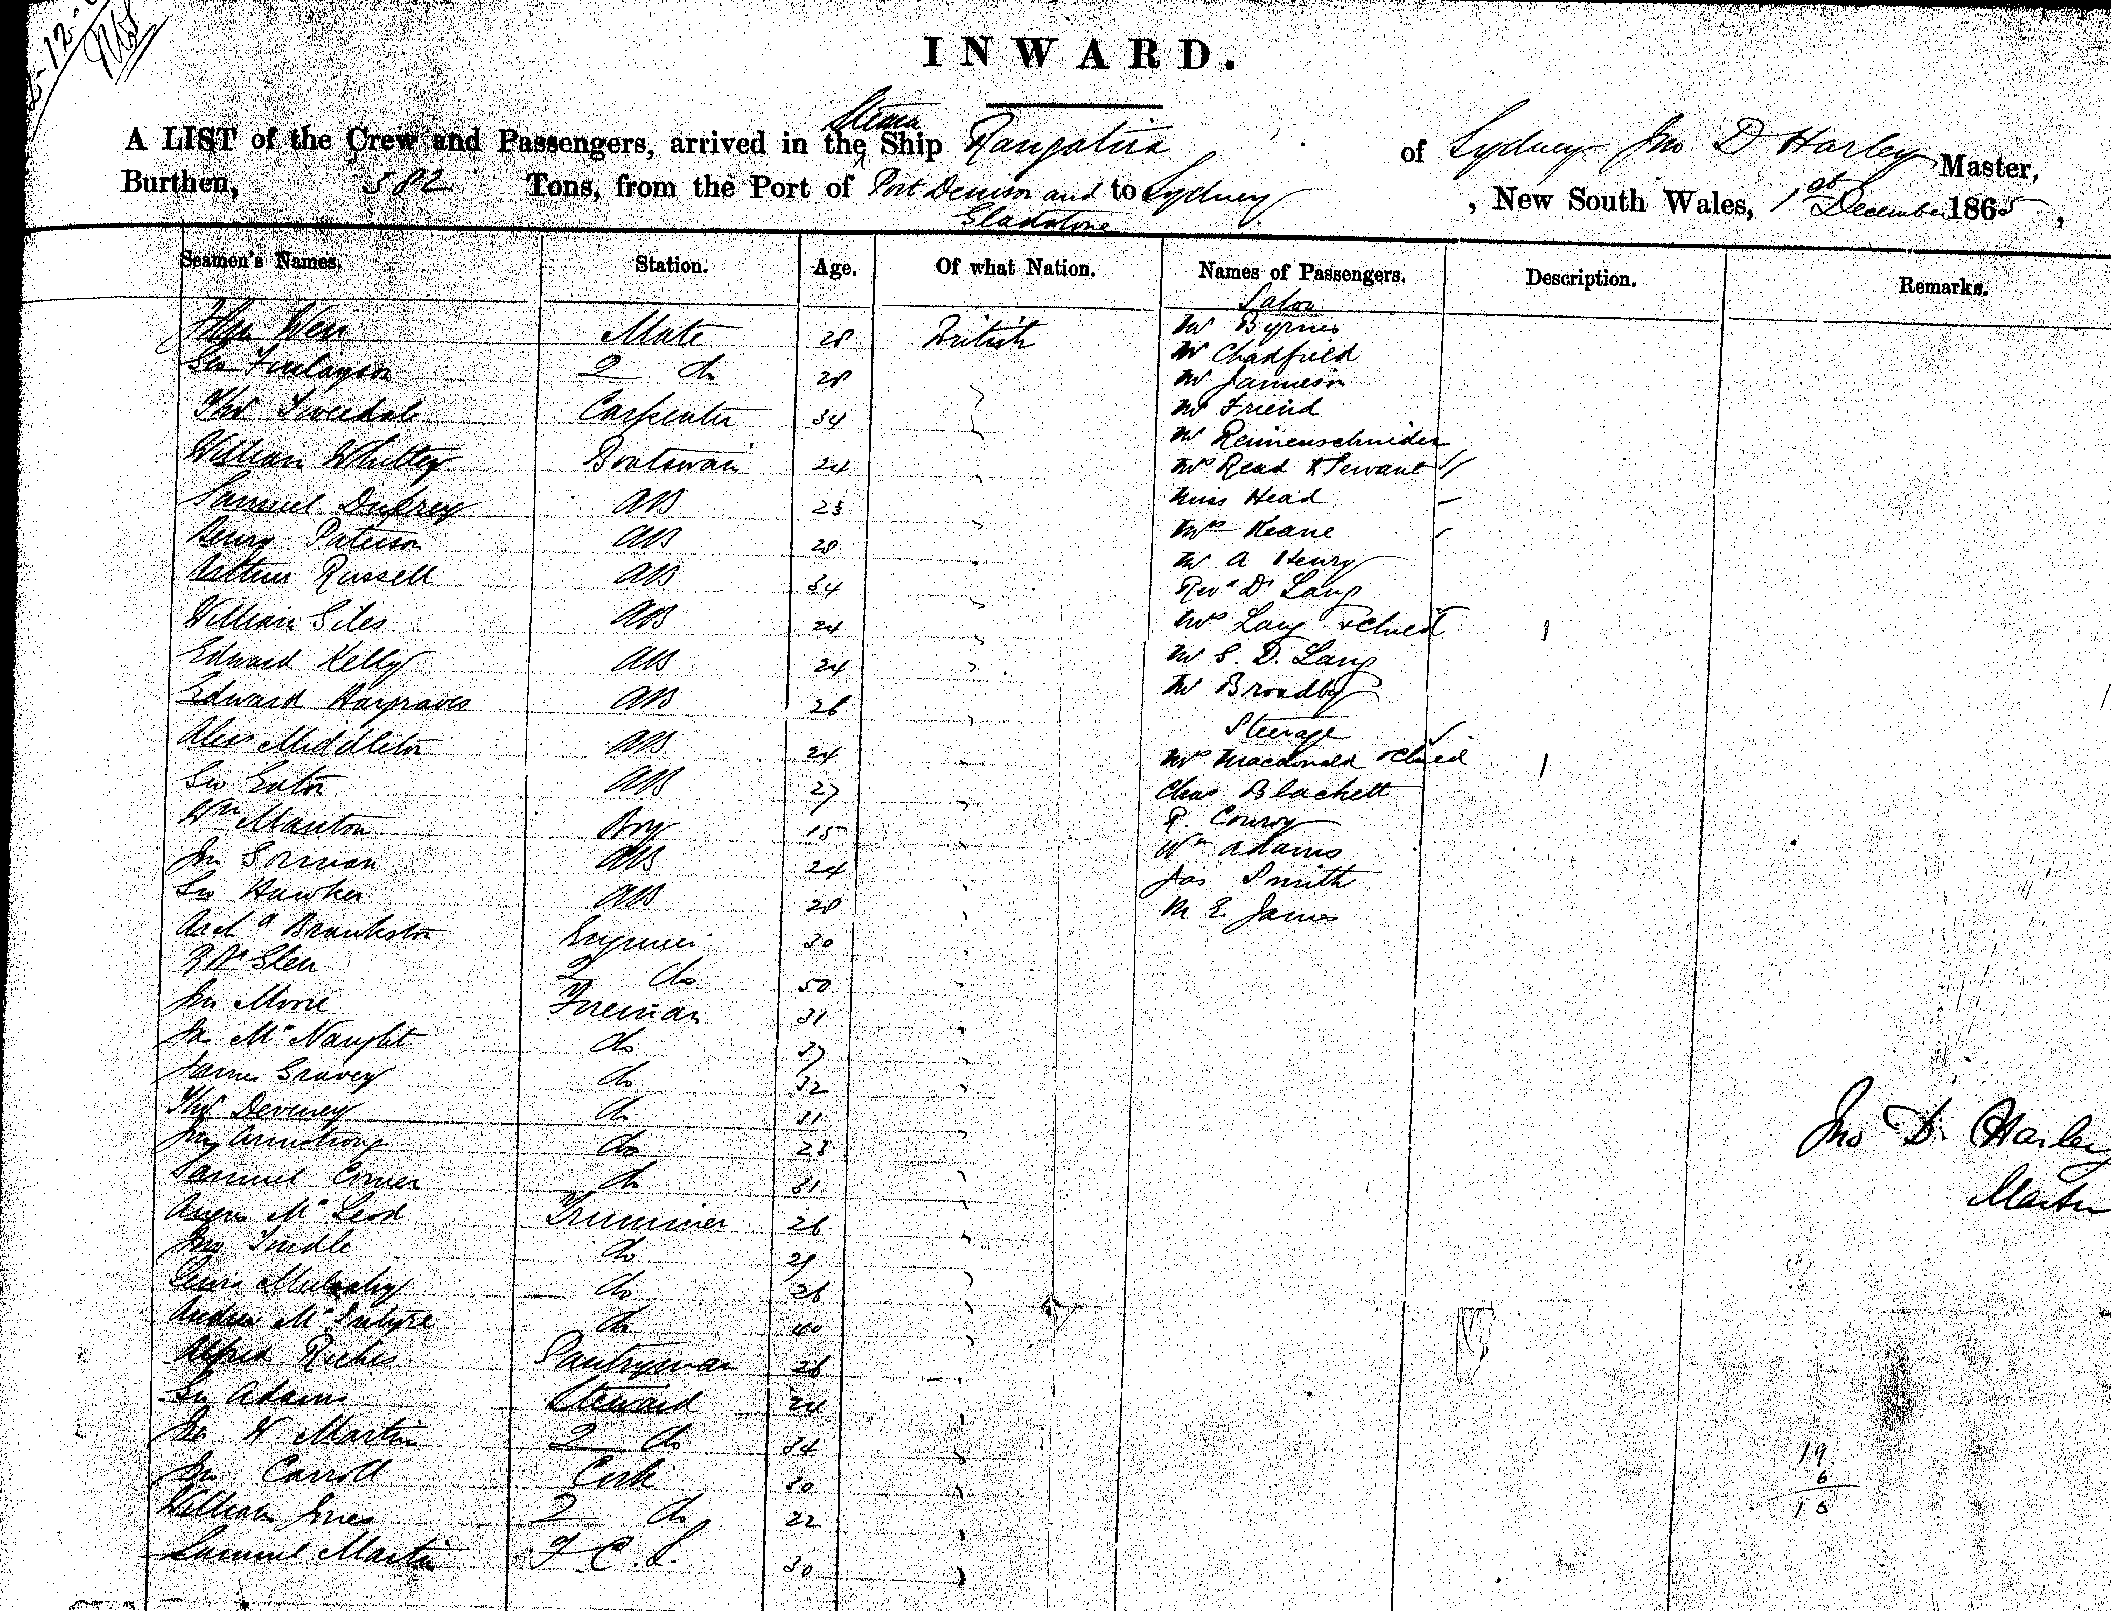 INWARD.
A LIST of the Crew and Passengers, arrived in the Steam Ship Rangatira of Sydney Jno D Harley Master,
Burthen, 582 Tons, from the Port of Port Denison and Gladstone to Sydney, New South Wales, 1st December 1865,
Seamen's Names. Station. Age. Of what Nation. Names of Passengers. Description. Remarks.
Salon
Weir Mate 28 British Mr Byrnes
Geo Finlayson 2 do 28 Mr Chadfield
Mr Jamieson
Thos Tweedale Carpenter 34 Mr Friend
Mr Reimenschneider
William Whitley Boatswain 24 Mrs Read & Servant
Samuel AB 23 Miss Head
Henry Paterson AB 28 Mrs Keane
Mr A Henry
Arthur Russell AB 34 Revd Dr Lang
William Giles AB 24 Mrs Lang
Edward Kelly AB 24 Mr G. D. Lang
Edward Hargraves AB 26 Mr Broadby
Steerage
Alexr Middleton AB 24 Mrs Macdonald
Geo Eaton AB 27 Chas Blackett
Wm Manton Boy 15 P. Conroy
Jno Gorman AB 24 Wm Adams
Jas Smith
Geo Hawker AB 28 M E James
Archd Brankston Engineer 30
Glen 2 do 50
Jno Moore Fireman 31
Jno McNaught do 37
James Gravey do 32
Thos Deveney do 31
Jno Armstrong do 28
Samuel do 31
Angus McLeod Trimmer 26
Jno Tindle do 29
Lewis Mulcahy do 26
Andrew McIntyre do 40
Alfred Riches Pantryman 26
Geo Adams Steward 24
Jno W Martin 2 do 34
Jno Carroll Cook 30
William Jones 2 do 22
Samuel Martin F. C. S. 30
Jno D. Harley
Master
19
6